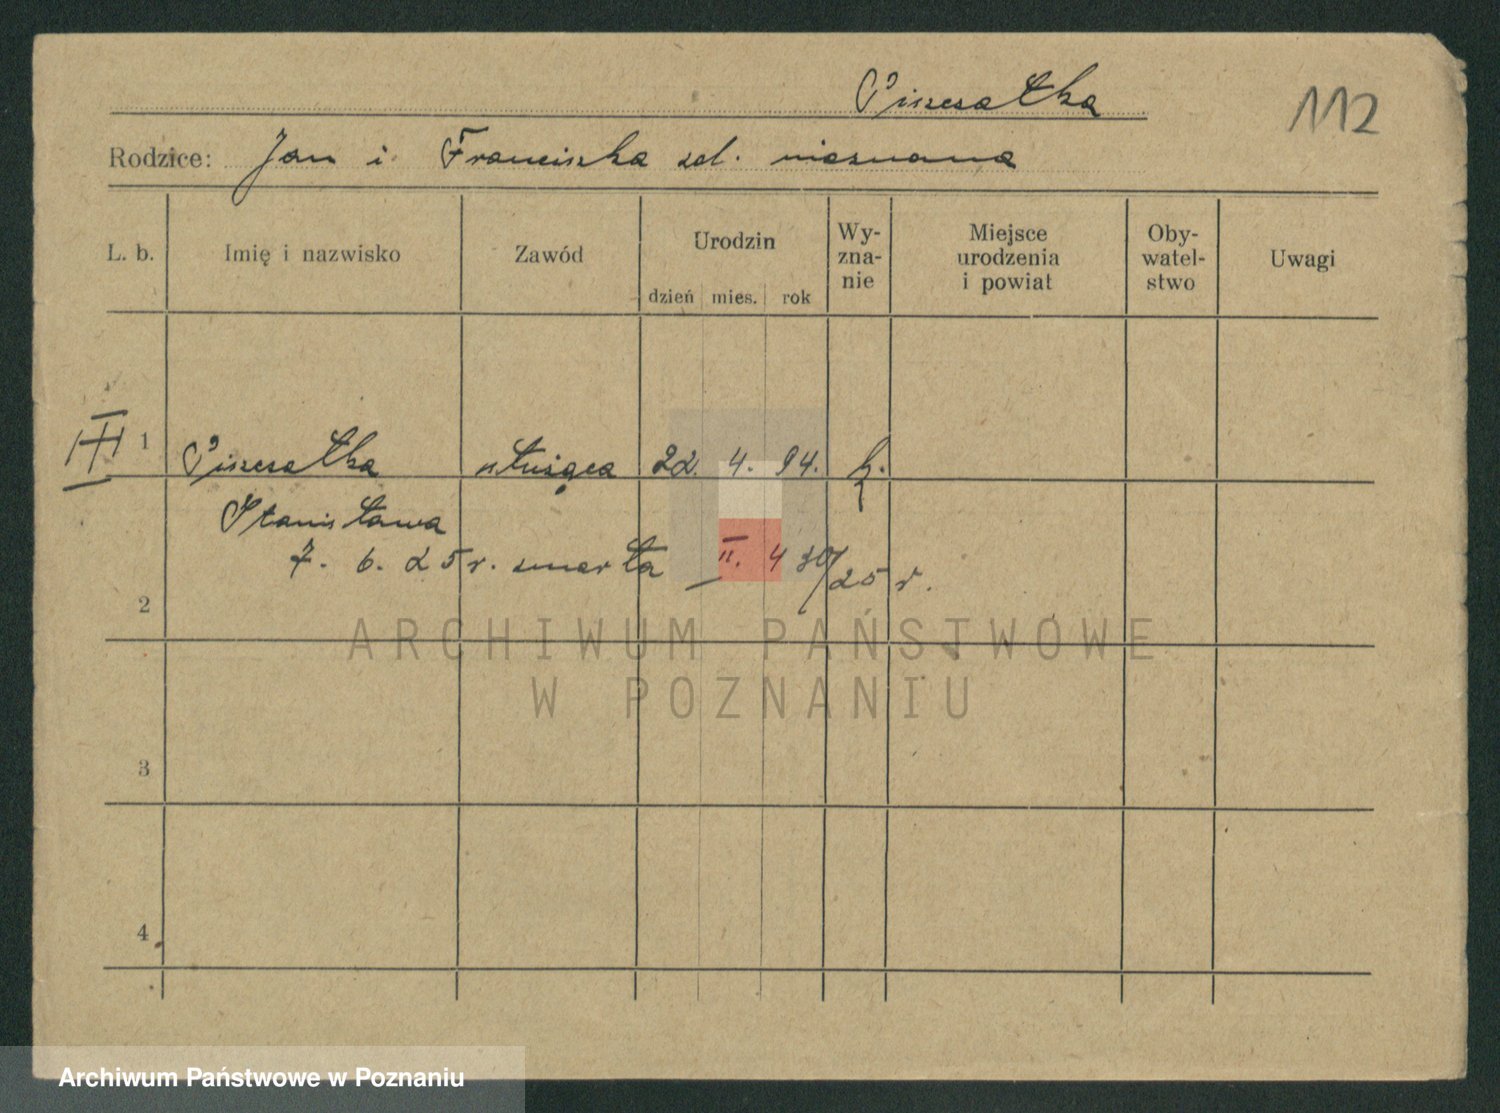 Piszczatka
112
Rodzice: Jan i Franciszka zd. nieznana
L. b. Imię i nazwisko Zawód Urodzin dzień mies. rok Wy- zna- nie Miejsce urodzenia i powiat Oby- watel- stwo Uwagi
1 służąca 22. 4. 94. k.
Stanisława
7. 6. 25 r. zmarła II. 430/25 r.
2
ARCHIWUM PAŃSTWOWE
W POZNANIU
3
4
Archiwum Państwowe w Poznaniu